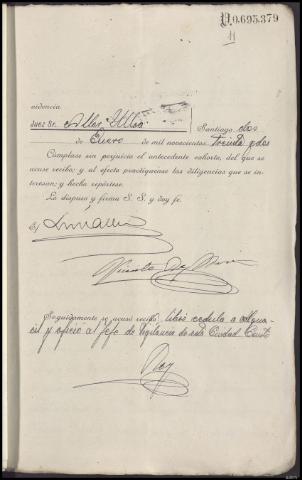 N0.695.379
11
videncia
Juez Sr. Santiago dos
de Enero de mil novecientos treinta y dos
Cúmplase sin perjuicio el antecedente exhorto, del que se
acuse recibo; y al efecto practíquense las diligencias que se in-
teresan; y hecho repórtese.
Lo dispuso y firma S. S. y doy fe.
Seguidamente se acusó recibo, libró cédula a Algua-
cil y oficio al Jefe de Vigilancia de esta Ciudad